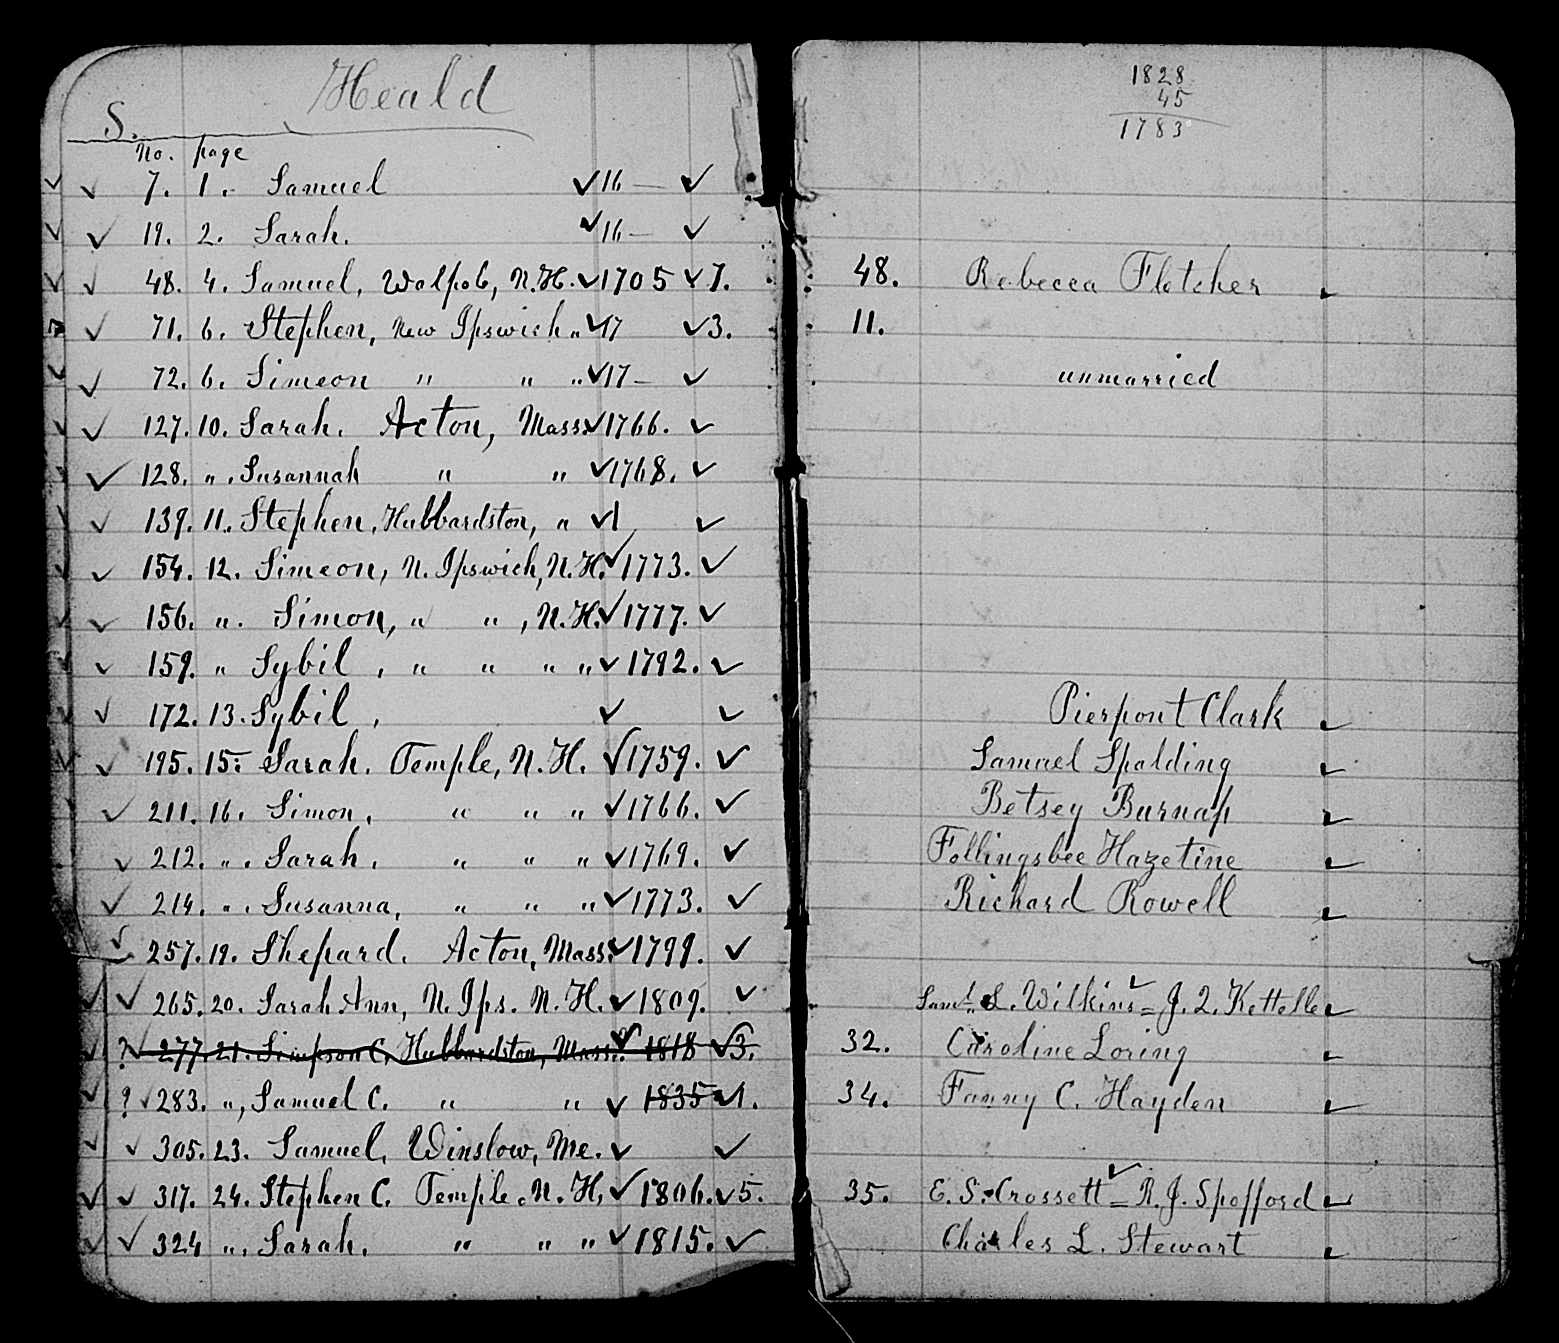 Heald
S.
No. page
7. 1. Samuel ✓ 16 — ✓
19. 2. Sarah. ✓ 16 — ✓
48. 4. Samuel, Walpole, N.H. ✓ 1705 ✓ 7.
71. 6. Stephen, New Ipswich „ ✓ 17 ✓ 3.
72. 6. Simeon „ „ „ ✓ 17 – ✓
127. 10. Sarah. Acton, Mass. ✓ 1766. ✓
128. „ . Susannah „ „ ✓ 1768. ✓
139. 11. Stephen, Hubbardston, „ ✓ 1 ✓
154. 12. Simeon, N. Ipswich, N.H. ✓ 1773. ✓
156. „ . Simon, „ „ , N.H. ✓ 1777. ✓
159. „ Sybil , „ „ „ „ ✓ 1792. ✓
172. 13. Sybil , ✓ ✓
195. 15. Sarah. Temple, N.H. ✓ 1759. ✓
211. 16. Simon, „ „ „ ✓ 1766. ✓
212. „ . Sarah, „ „ „ ✓ 1769. ✓
214. „ . Susanna, „ „ „ ✓ 1773. ✓
257. 19. Shepard. Acton, Mass. ✓ 1799. ✓
265. 20. Sarah Ann, N. Ips. N.H. ✓ 1809. ✓
? 277. 21. Simpson C, Hubbardston, Mass. ✓ 1818 ✓ 3.
? ✓ 283. „ , Samuel C. „ „ ✓ 1835 ✓ 1.
305. 23. Samuel, Winslow, Me. ✓ ✓
317. 24. Stephen C. Temple. N.H. ✓ 1806. ✓ 5.
324 „ . Sarah. „ „ „ ✓ 1815. ✓
1828
45
1783
48. Rebecca Fletcher
11.
unmarried
Pierpont Clark
Samuel Spalding
Betsey Burnap
Follingsbee Hazetine
Richard Rowell
Saml. S. Wilkins = J. Q. Kettelle
32. Caroline Loring
34. Fanny C. Hayden
35. E. S. Crossett = R. J. Spofford
Charles L. Stewart